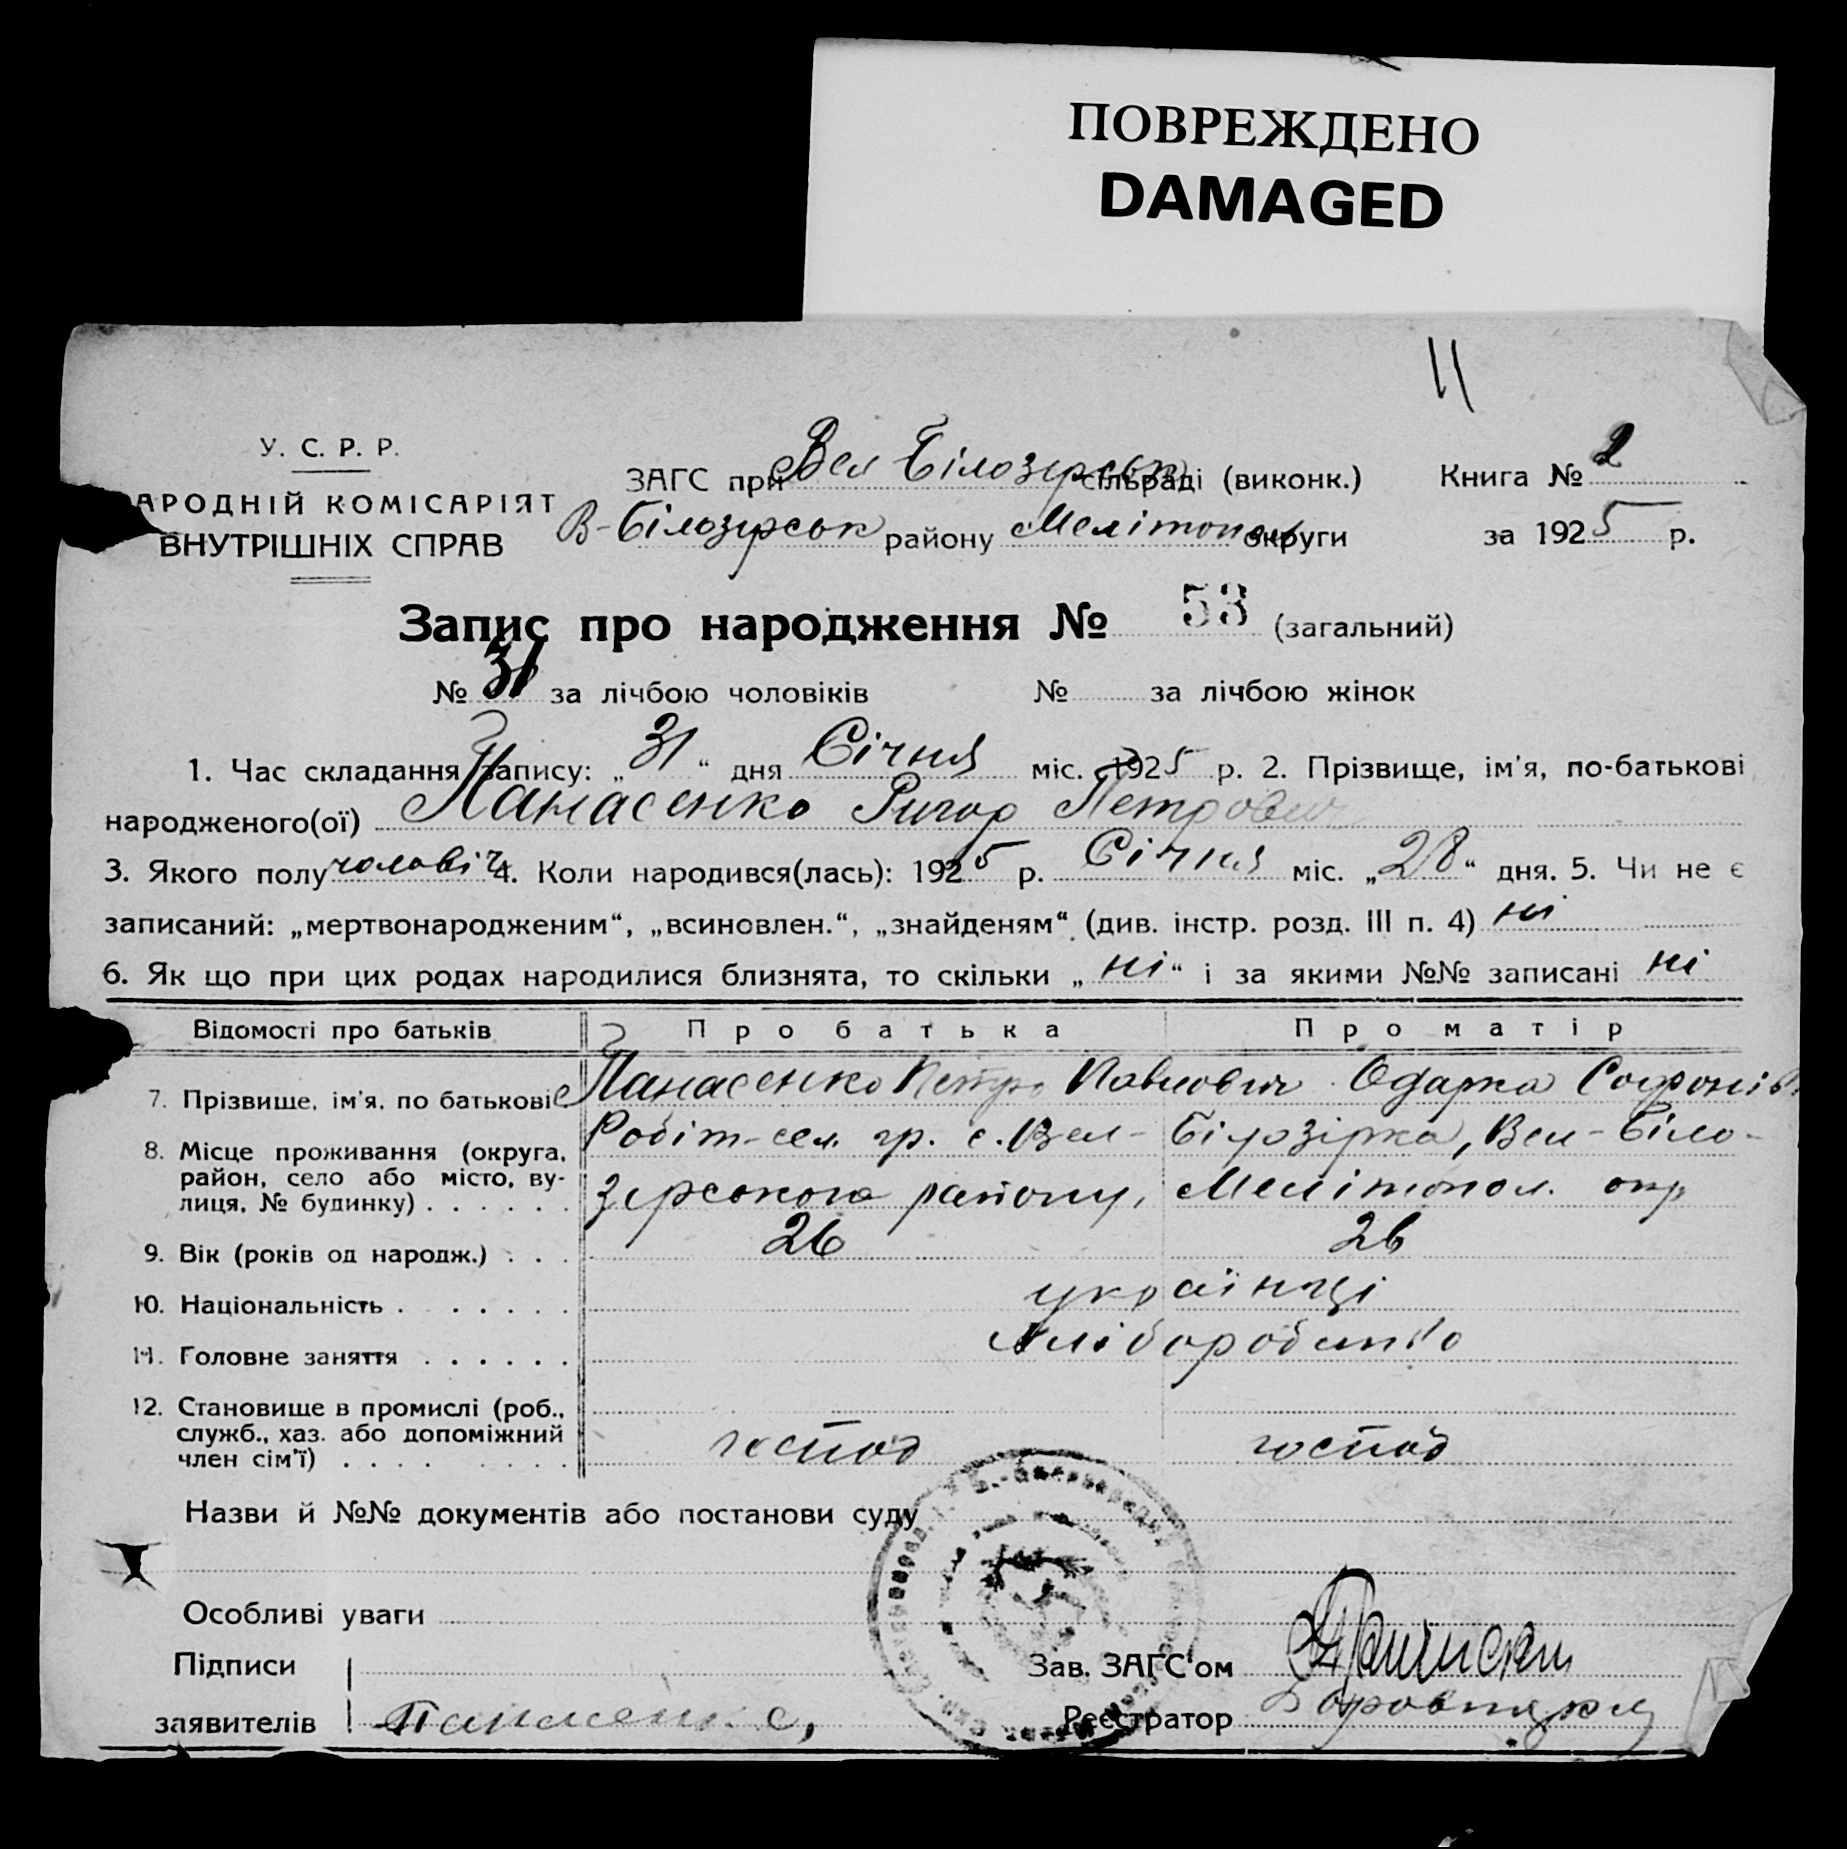 ПОВРЕЖДЕНО
DAMAGED
11
У. С. Р. Р.
АРОДНІЙ КОМІСАРІЯТ
ВНУТРІШНІХ СПРАВ
ЗАГС при Вел Білозірськ сільраді (виконк.)
Книга № 2
В-Білозірськ району Мелітополь округи
за 1925 р.
Запис про народження № 53 (загальний)
№ 31 за лічбою чоловіків № за лічбою жінок
1. Час складання запису: „31“ дня Січня міс. 1925 р. 2. Прізвище, ім'я, по-батькові
народженого(ої) Панасенко Ригор Петрович
3. Якого полу чоловіч 4. Коли народився(лась): 1925 р. Січня міс. „28“ дня. 5. Чи не є
записаний: „мертвонародженим“, „всиновлен.“, „знайденям“ (див. інстр. розд. III п. 4) ні
6. Як що при цих родах народилися близнята, то скільки „ні“ і за якими №№ записані ні
Відомості про батьків Про батька Про матір
7. Прізвище, ім'я, по батькові Панасенко Петро Павлович Одарка Софонів
8. Місце проживання (округа, район, село або місто, вулиця, № будинку) . . . . . .
Робіт-сел. гр. с. Вел-Білозірка, Вел-Біло-
зірського району, Мелітопол. окр
9. Вік (років од народж.) . . . 26 26
10. Національність . . . . . . . українці
11. Головне заняття . . . . . . Хліборобство
12. Становище в промислі (роб., служб., хаз. або допоміжний член сім'ї) . . . . . . . . . господ господ
Назви й №№ документів або постанови суду
Особливі уваги
Підписи
заявителів Панасенко,
Зав. ЗАГС'ом
Реєстратор